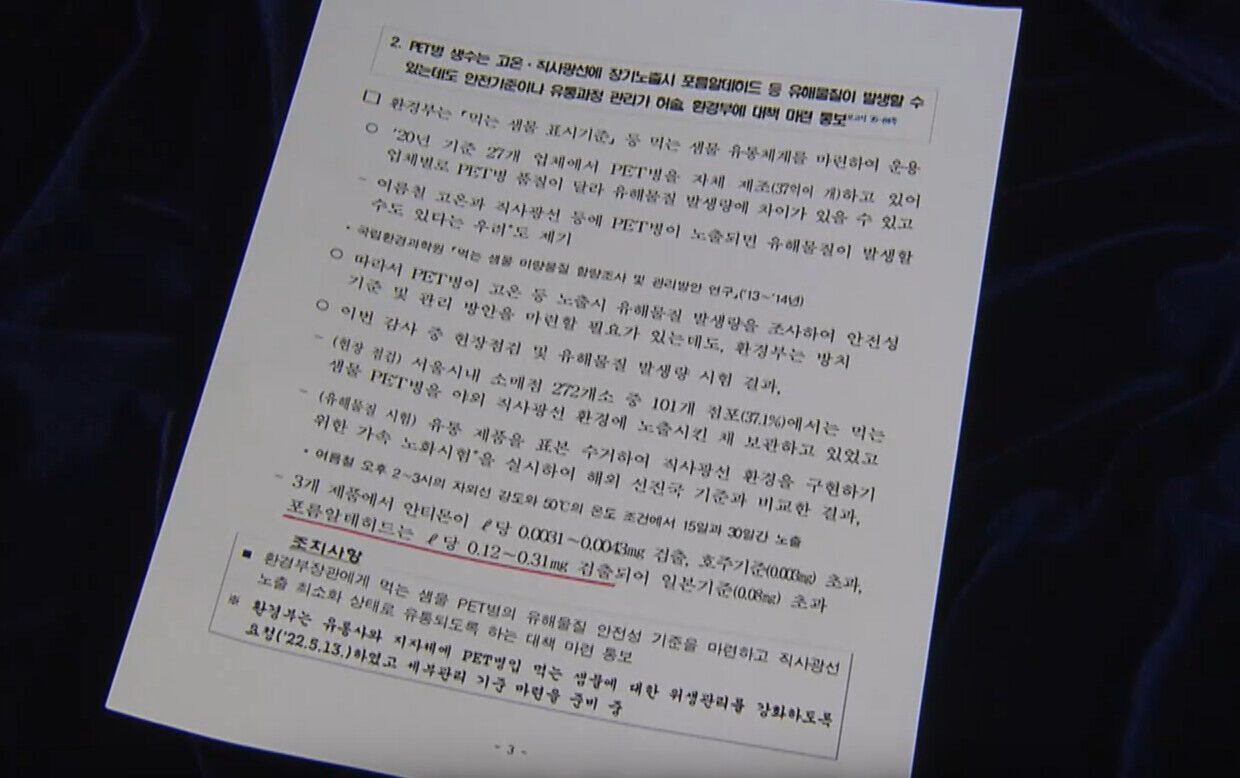 2. PET병 생수는 고온·직사광선에 장기노출시 포름알데하이드 등 유해물질이 발생할 수
있는데도 안전기준이나 유통과정 관리가 허술, 환경부에 대책 마련 통보
□ 환경부는 「먹는 샘물 표시기준」 등 먹는 샘물 유통체계를 마련하여 운용
○ '20년 기준 27개 업체에서 PET병을 자체 제조(37억여 개)하고 있어
업체별로 PET병 품질이 달라 유해물질 발생량에 차이가 있을 수 있고
- 여름철 고온과 직사광선 등에 PET병이 노출되면 유해물질이 발생할
수도 있다는 우려*도 제기
* 국립환경과학원 「먹는 샘물 미량물질 함량조사 및 관리방안 연구」('13~'14년)
○ 따라서 PET병이 고온 등 노출시 유해물질 발생량을 조사하여 안전성
기준 및 관리 방안을 마련할 필요가 있는데도, 환경부는 방치
○ 이번 감사 중 현장점검 및 유해물질 발생량 시험 결과,
- (현장 점검) 서울시내 소매점 272개소 중 101개 점포(37.1%)에서는 먹는
샘물 PET병을 야외 직사광선 환경에 노출시킨 채 보관하고 있었고
- (유해물질 시험) 유통 제품을 표본 수거하여 직사광선 환경을 구현하기
위한 가속 노화시험*을 실시하여 해외 선진국 기준과 비교한 결과,
* 여름철 오후 2~3시의 자외선 강도와 50℃의 온도 조건에서 15일과 30일간 노출
- 3개 제품에서 안티몬이 ℓ당 0.0031~0.0043mg 검출, 호주기준(0.003mg) 초과,
포름알데히드는 ℓ당 0.12~0.31mg 검출되어 일본기준(0.08mg) 초과
조치사항
■ 환경부장관에게 먹는 샘물 PET병의 유해물질 안전성 기준을 마련하고 직사광선
노출 최소화 상태로 유통되도록 하는 대책 마련 통보
※ 환경부는 유통사와 지자체에 PET병입 먹는 샘물에 대한 위생관리를 강화하도록
요청('22.5.13.)하였고 세부관리 기준 마련을 준비 중
- 3 -